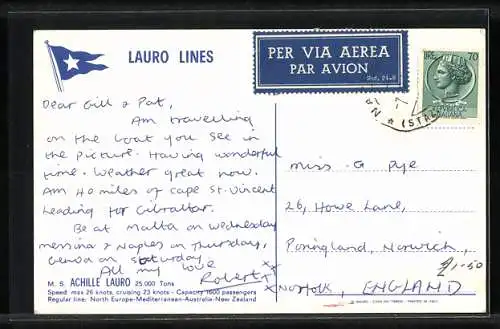 LAURO LINES
PER VIA AEREA
PAR AVION
LIRE 70
Dear Gill & Pat,
Am travelling
on the boat you see in
the picture. Having wonderful
time. Weather great now.
Am 40 miles of Cape St. Vincent
heading for Gibraltar.
Be at Malta on Wednesday
Messina & Naples on Thursday,
Genoa on Saturday.
All my love
Robert
Miss G Pye
26, Howe Lane,
Poringland, Norwich,
Norfolk, ENGLAND
£1-50
M. S. ACHILLE LAURO 25.000 Tons
Speed max 26 knots, cruising 23 knots - Capacity 1600 passengers
Regular line: North Europe-Mediterranean-Australia-New Zealand